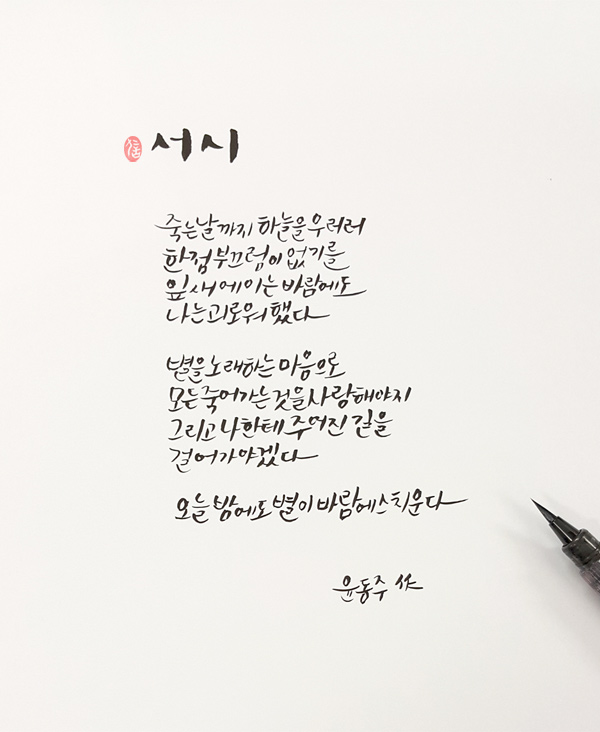 서시
죽는날까지 하늘을 우러러
한점 부끄럼이 없기를
잎새에이는 바람에도
나는괴로워했다
별을노래하는 마음으로
모든죽어가는것을사랑해야지
그리고나한테 주어진 길을
걸어가야겠다
오늘밤에도별이바람에스치운다
윤동주 作